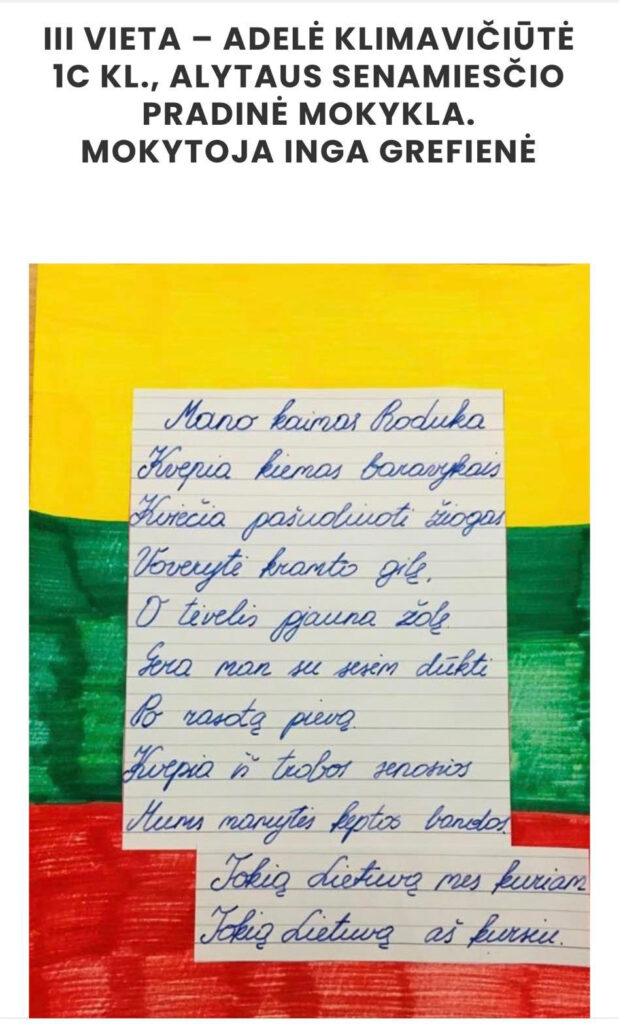 III VIETA – ADELĖ KLIMAVIČIŪTĖ
1C KL., ALYTAUS SENAMIESČIO
PRADINĖ MOKYKLA.
MOKYTOJA INGA GREFIENĖ
Mano kaimas Roduka
Kvepia kiemas baravykais
Kviečia pašuoliuoti žiogas
Voverytė kramto gilę,
O tėvelis pjauna žolę.
Gera man su sesėm dūkti
Po rasotą pievą.
Kvepia iš trobos senosios
Mums mamytės keptos bandos.
Tokią Lietuvą mes kuriam
Tokią Lietuvą aš kursiu.